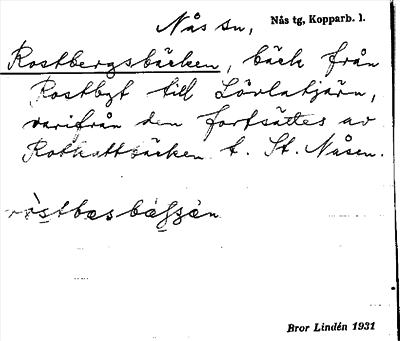 Nås sn, Nås tg, Kopparb. l.
Rostbergsbäcken, bäck från
Rostbgt till Lövlatjärn,
varifrån den fortsättes av
Rotkattbäcken t. St. Nåsen.
Bror Lindén 1931